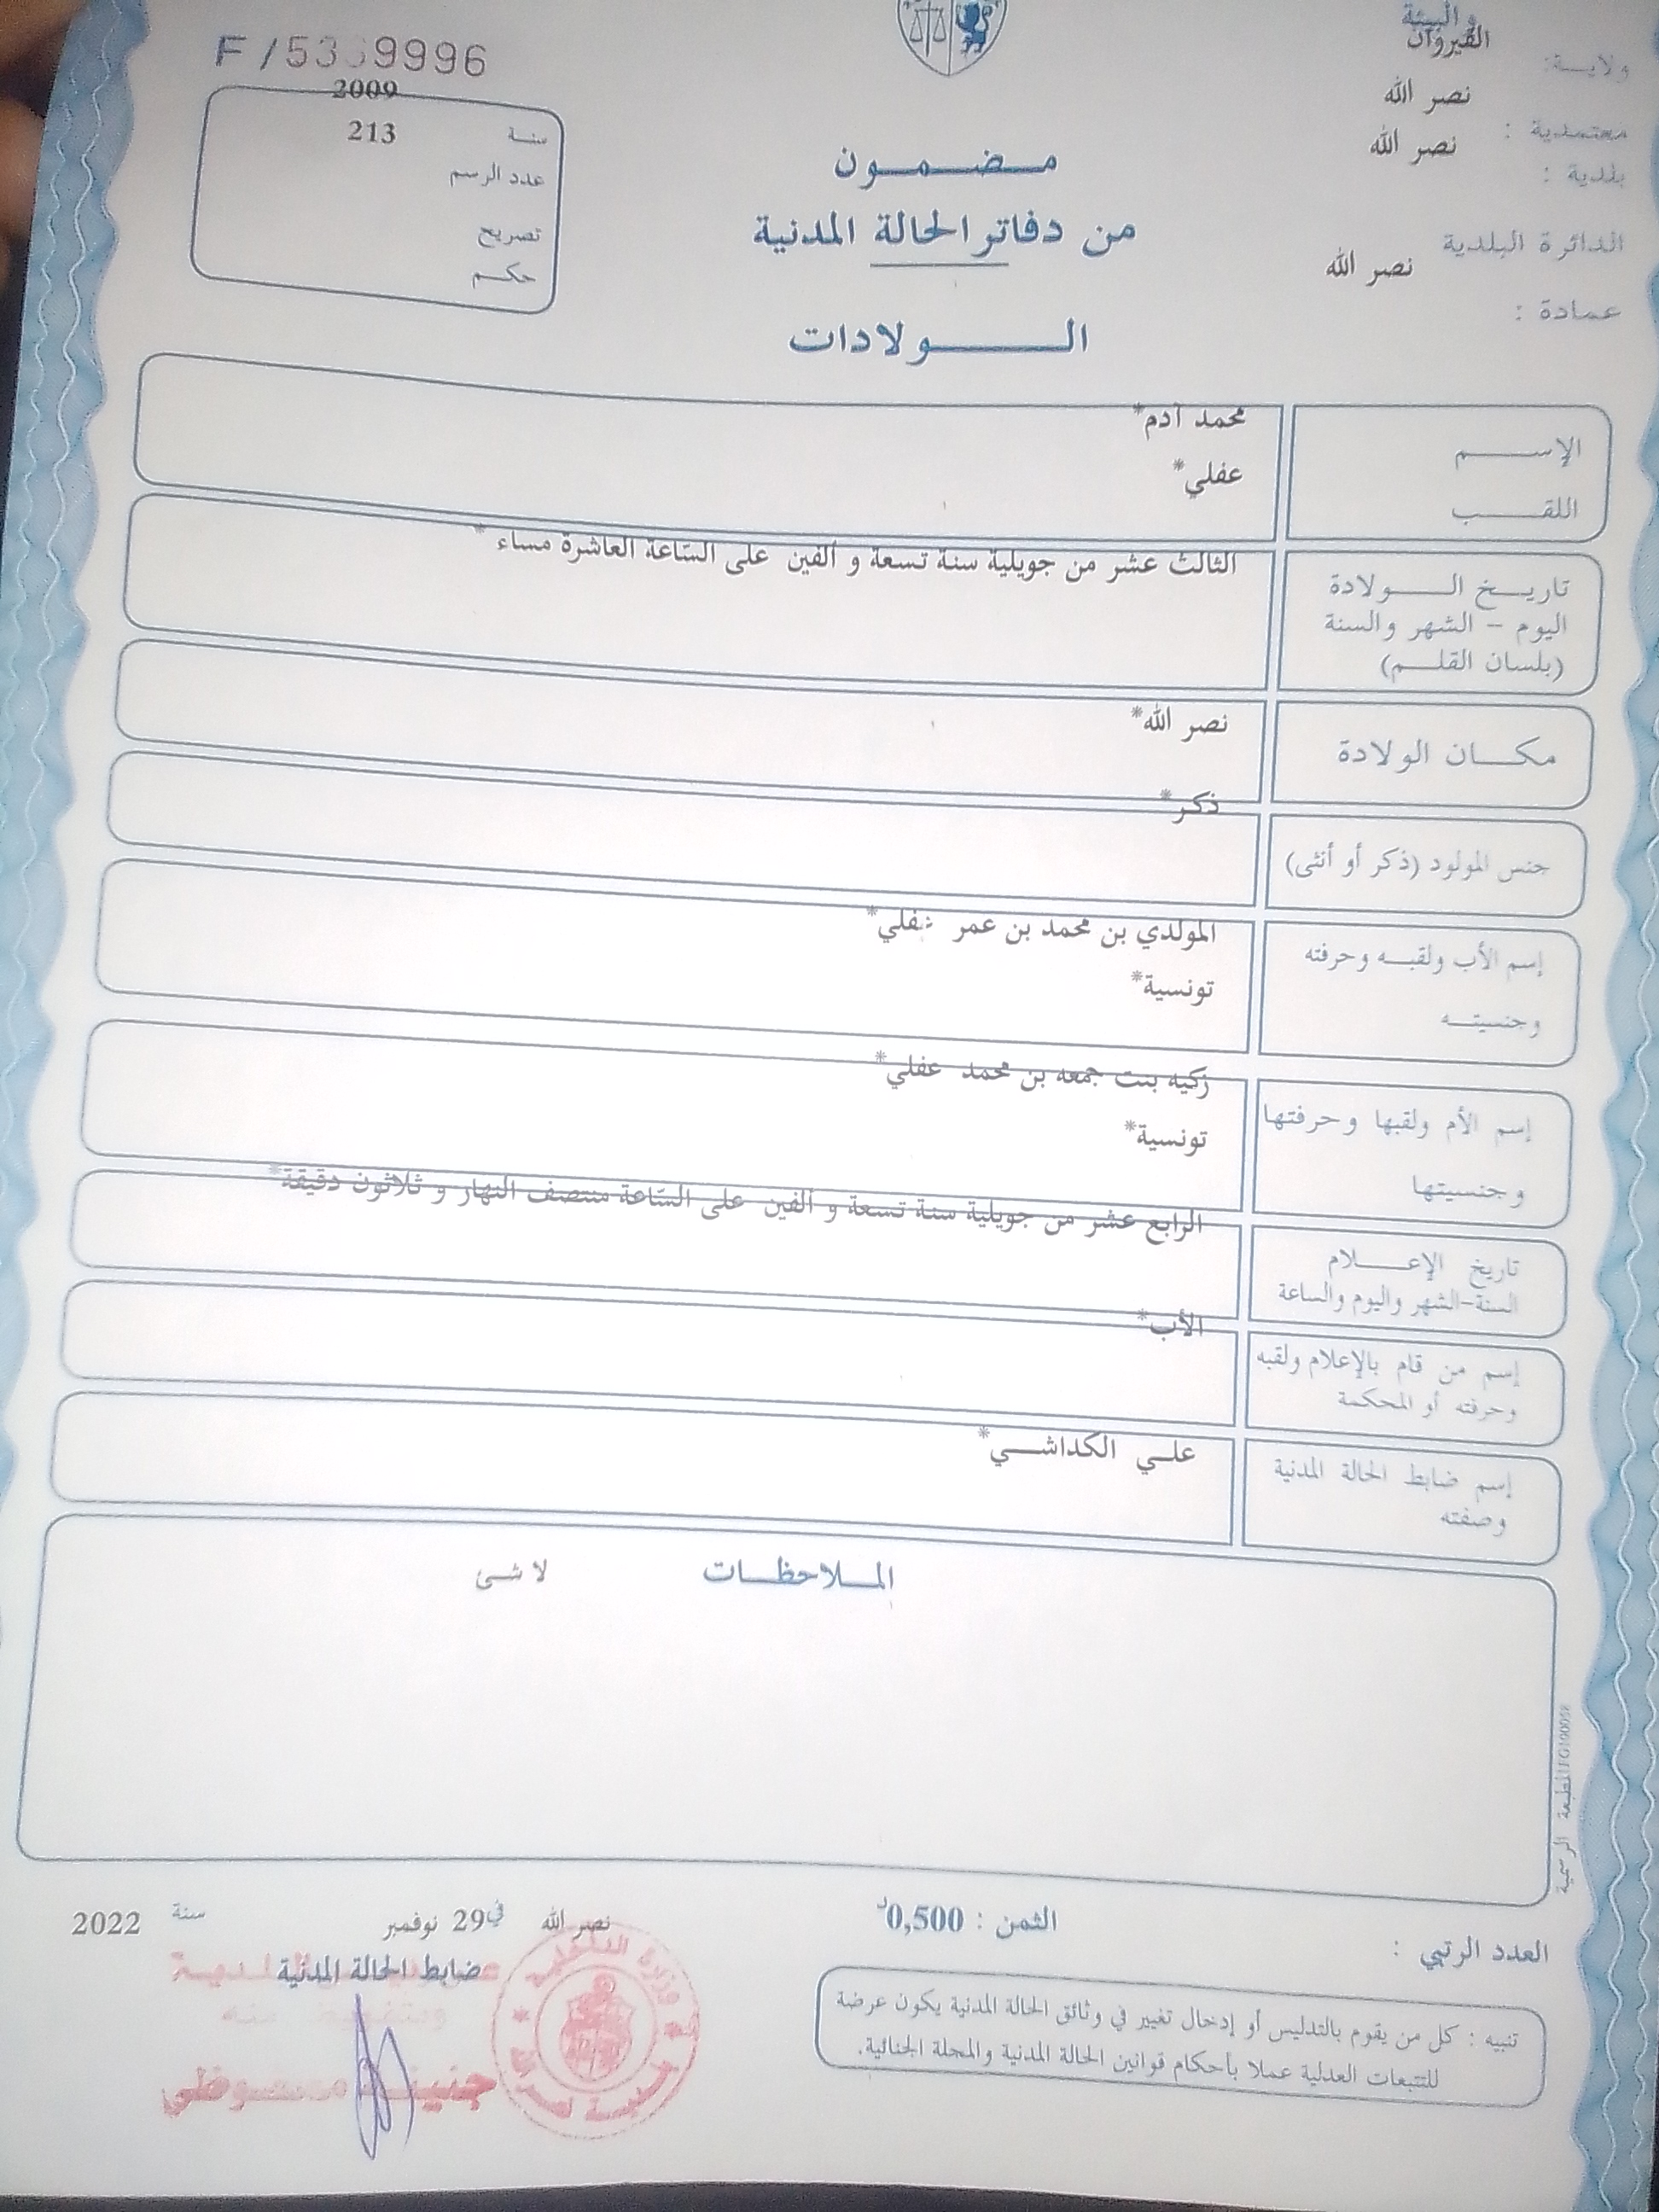 والبيئة
القيروان
ولايـــة:
نصر الله
معتمدية :
نصر الله
بلدية :
الدائرة البلدية
نصر الله
عمادة :
F /5339996
2009
سنة 213
عدد الرسم
تصريح
حكـــم
مـــضـــمـــون
من دفاتر الحالة المدنية
الـــــولادات
الإســـــم محمد آدم*
اللقـــــب عفلي*
تاريـــخ الـــــولادة الثالث عشر من جويلية سنة تسعة و ألفين على السّاعة العاشرة مساء *
اليوم – الشهر والسنة
(بلسان القلـــم)
مكـــان الولادة نصر الله*
جنس المولود (ذكر أو أنثى) ذكر*
إسم الأب ولقبـــه وحرفته المولدي بن محمد بن عمر عفلي*
وجنسيتـــه تونسية*
إسم الأم ولقبها وحرفتها زكيه بنت جمعه بن محمد عفلي*
وجنسيتها تونسية*
تاريخ الإعـــــلام الرابع عشر من جويلية سنة تسعة و ألفين على السّاعة منتصف النهار و ثلاثون دقيقة*
السنة-الشهر واليوم والساعة
إسم من قام بالإعلام ولقبه الأب*
وحرفته أو المحكمة
إسم ضابط الحالة المدنية علـــي الكداشـــي*
وصفته
المـــلاحظـــات لا شئ
المطبعة الرسمية
العدد الرتبي :
الثمن : 0,500د
نصر الله في 29 نوفمبر سنة 2022
ضابط الحالة المدنية
تنبيه : كل من يقوم بالتدليس أو إدخال تغيير في وثائق الحالة المدنية يكون عرضة
للتتبعات العدلية عملا بأحكام قوانين الحالة المدنية والمجلة الجنائية.